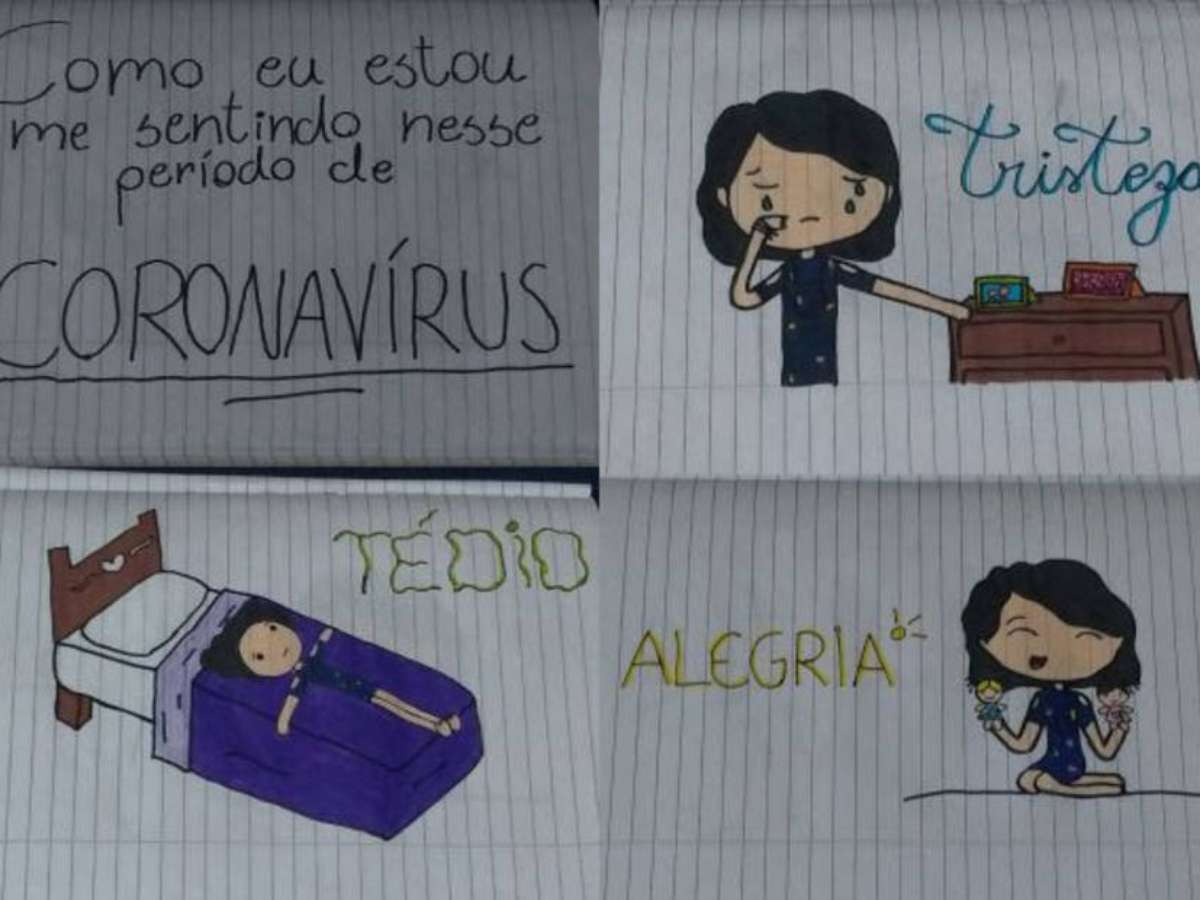 Como eu estou
me sentindo nesse
período de
CORONAVÍRUS
Tristeza
TÉDIO
ALEGRIA